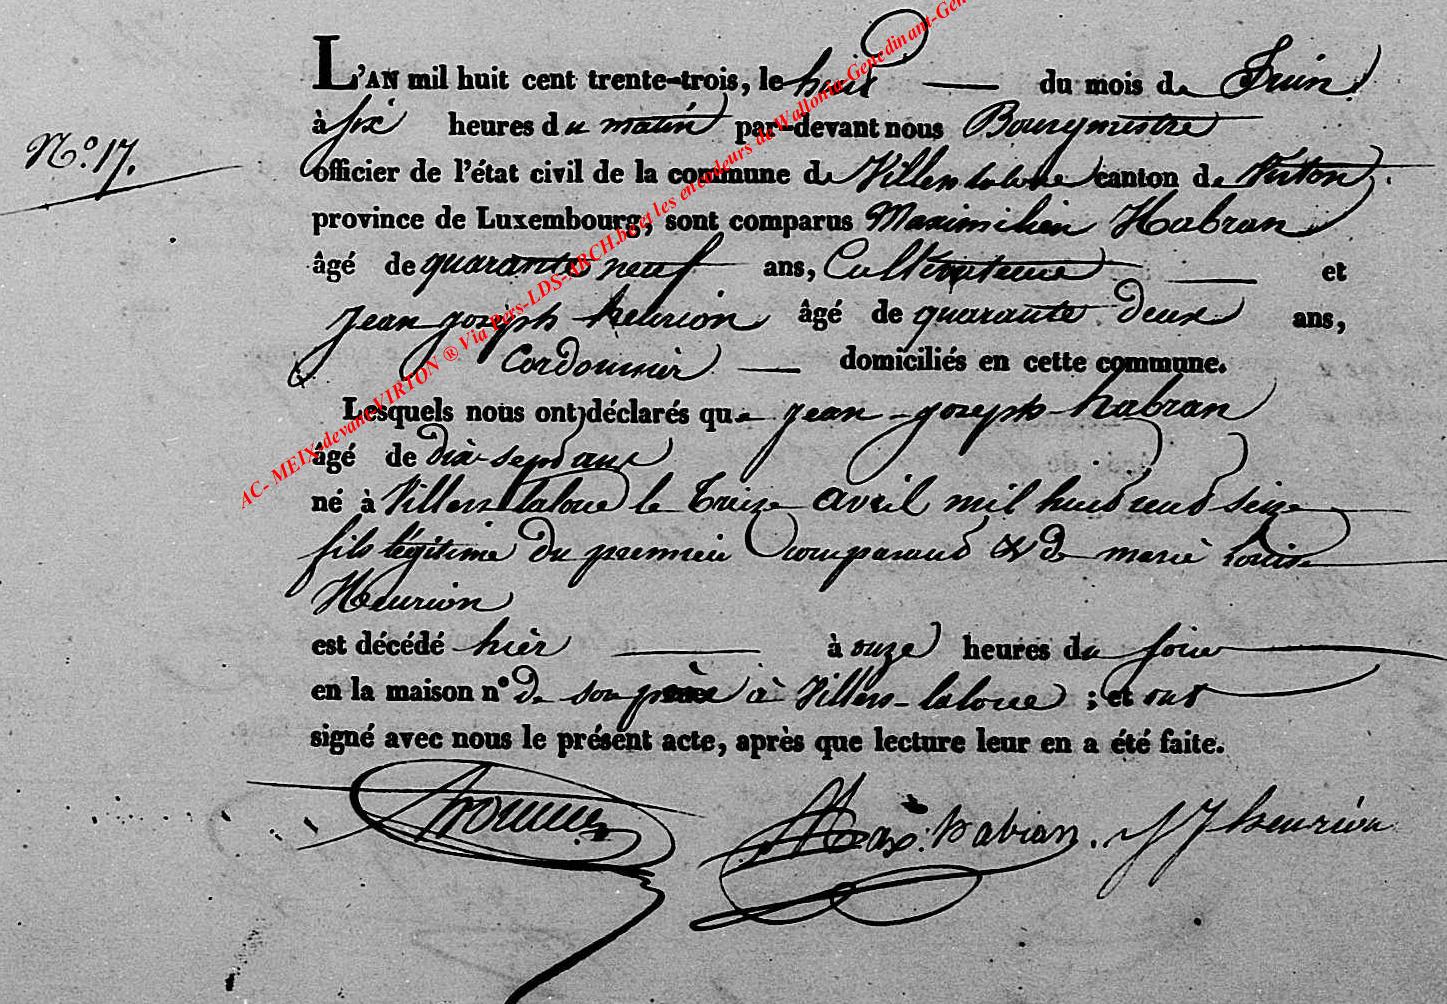 L'AN mil huit cent trente-trois, le huit du mois de Juin
à six heures du matin par-devant nous Bourgmestre
N.º 17.
officier de l'état civil de la commune de Villers laloue canton de Virton
province de Luxembourg, sont comparus Maximilien Habran
âgé de quarante neuf ans, Cultivateur et
Jean joseph heurion âgé de quarante deux ans,
Cordonnier domiciliés en cette commune.
Lesquels nous ont déclarés que jean-joseph habran
âgé de dix-sept ans
né à Villers laloue le treize avril mil huit cent seize
fils légitime du premier comparant & de marie louise
Heurion
est décédé hièr à onze heures du soir
en la maison nº de son père à Villers-laloue ; et ont
signé avec nous le présent acte, après que lecture leur en a été faite.
Max. habran. J J heurion
AC- MEIX-devant-VIRTON ® Via Pers-LDS-ARCH.be et les encodeurs de Wallonia-Genedinant-Gen